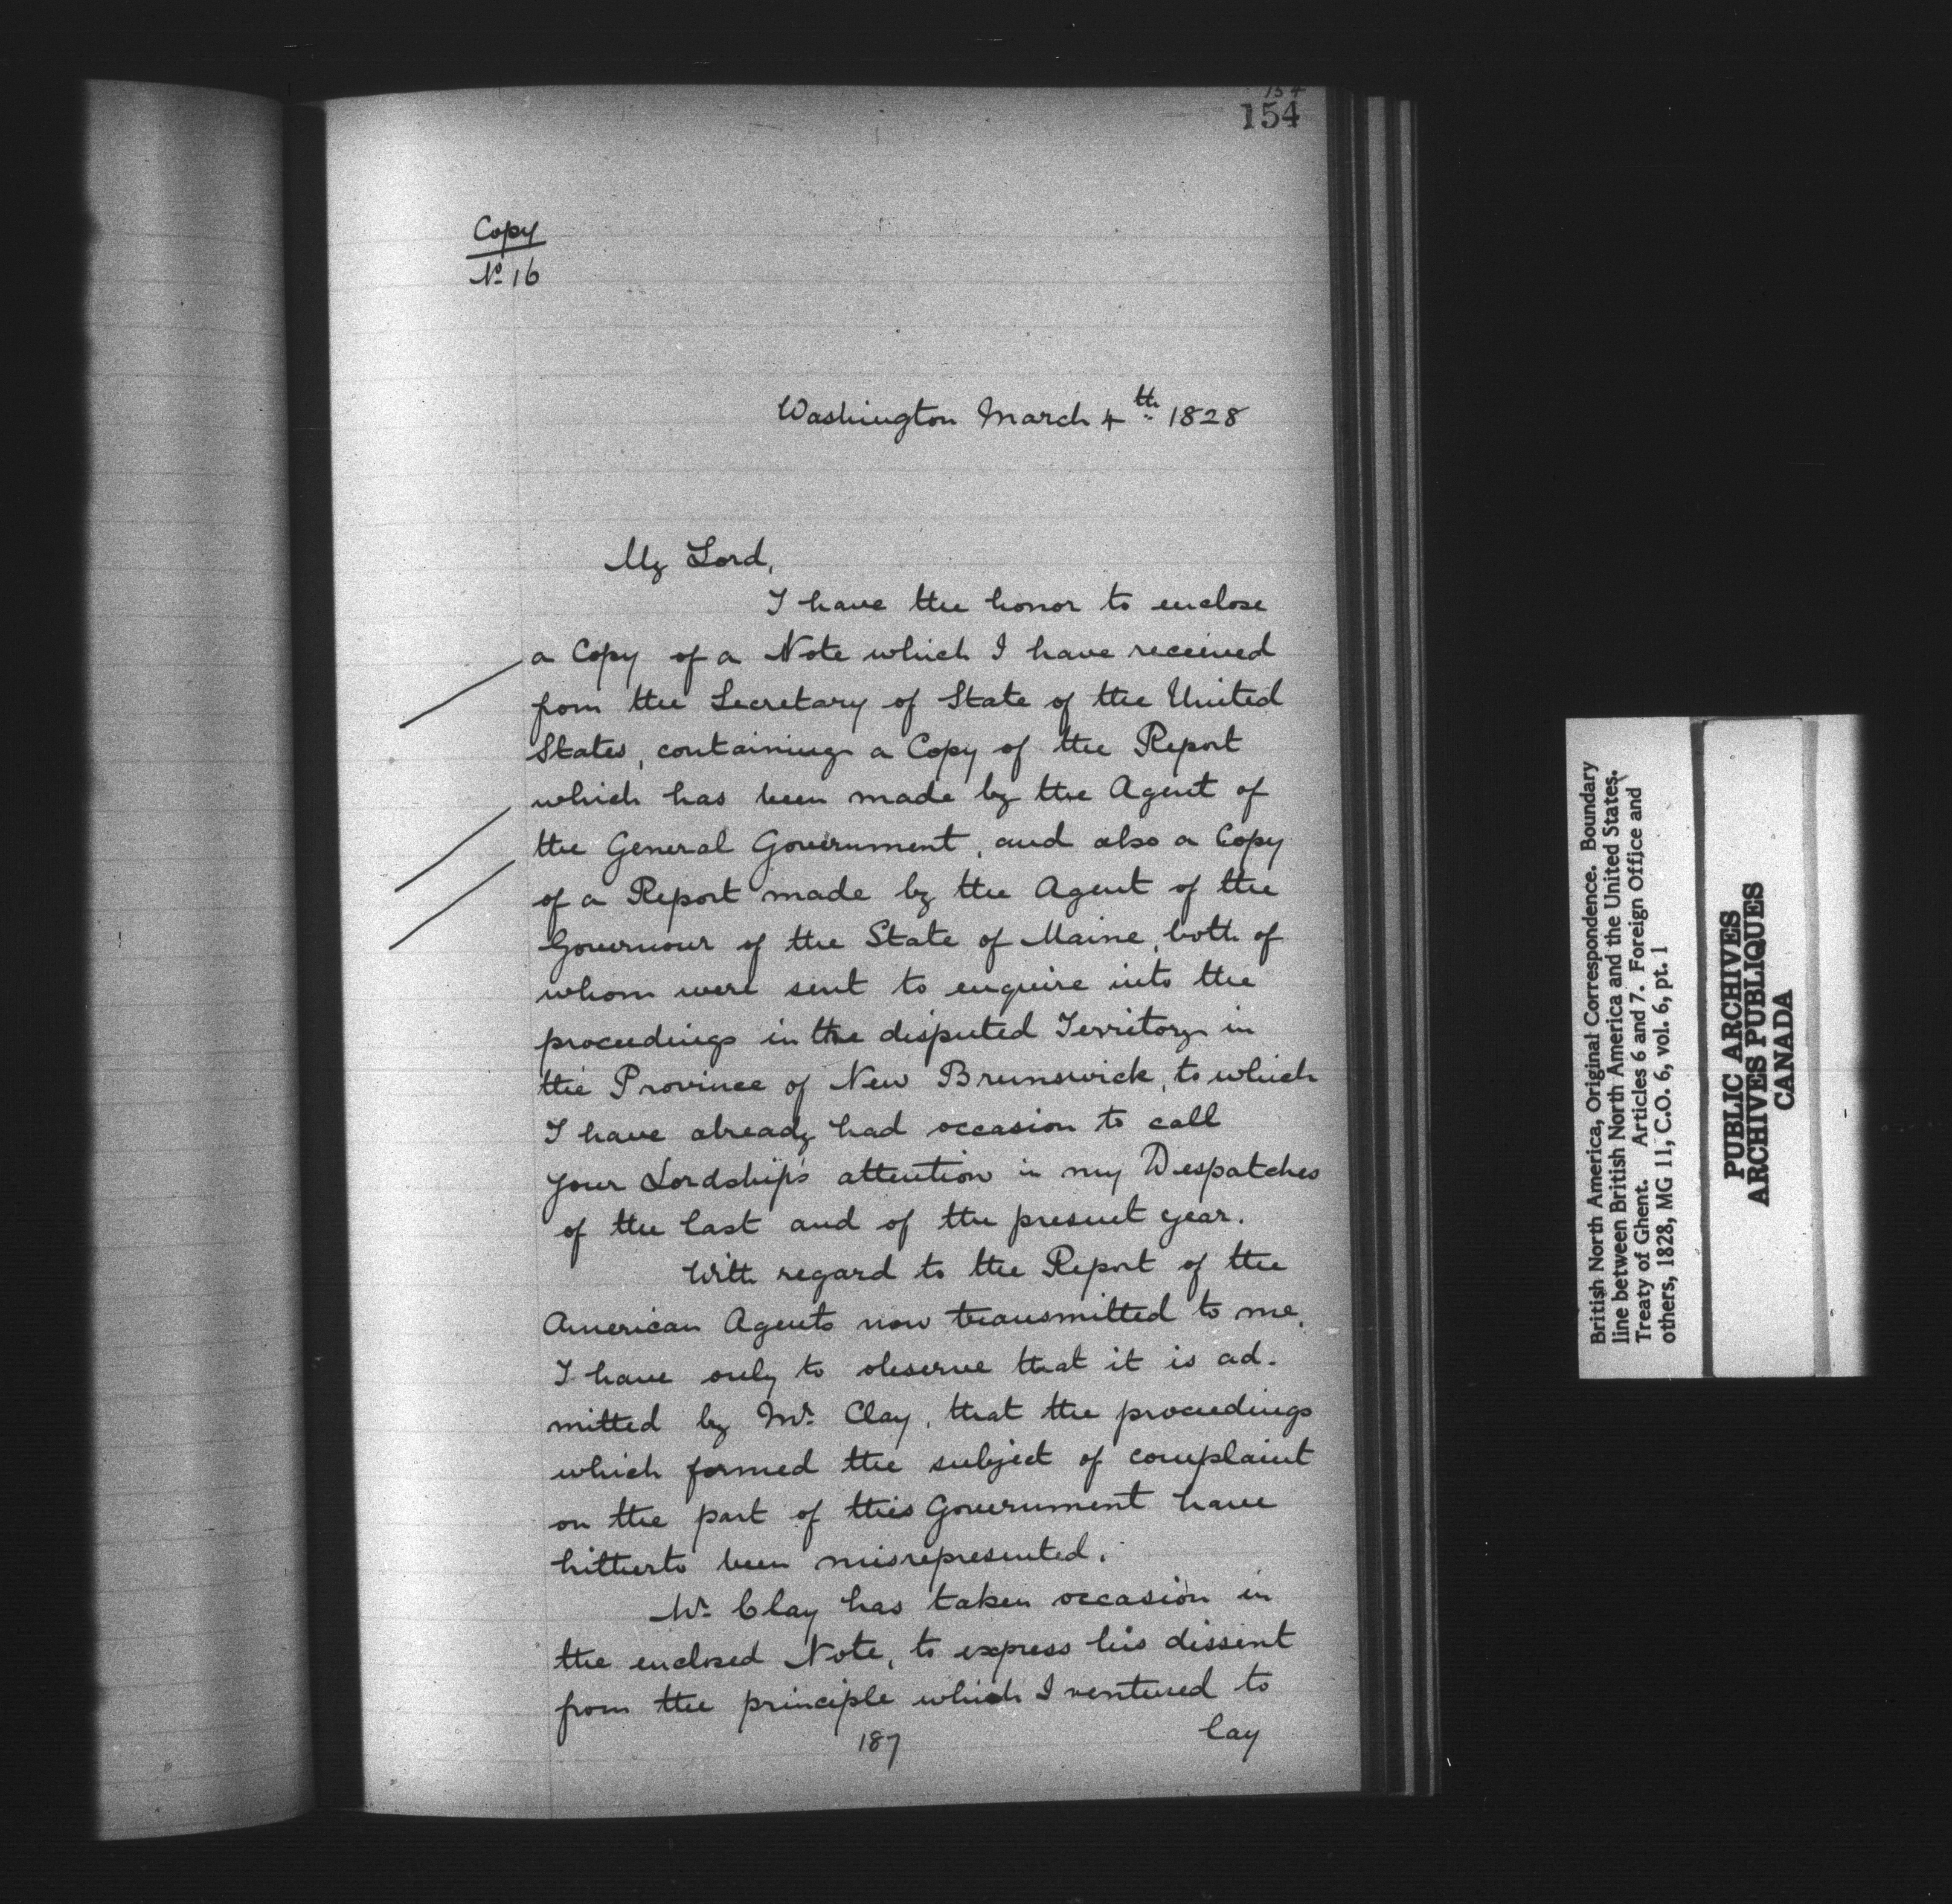 154
154
Copy
No. 16
Washington March 4th 1828
My Lord,
I have the honor to enclose
a Copy of a Note which I have received
from the Secretary of State of the United
States, containing a Copy of the Report
which has been made by the Agent of
the General Government, and also a Copy
of a Report made by the Agent of the
Governour of the State of Maine, both of
whom were sent to enquire into the
proceedings in the disputed Territory in
the Province of New Brunswick, to which
I have already had occasion to call
your Lordship's attention in my Despatches
of the last and of the present year.
With regard to the Report of the
American Agents now transmitted to me,
I have only to observe that it is ad-
mitted by Mr. Clay, that the proceedings
which formed the subject of complaint
on the part of this Government have
hitherto been misrepresented.
Mr. Clay has taken occasion in
the enclosed Note, to express his dissent
from the principle which I ventured to
lay
187
British North America, Original Correspondence. Boundary
line between British North America and the United States.
Treaty of Ghent. Articles 6 and 7. Foreign Office and
others, 1828, MG 11, C.O. 6, vol. 6, pt. 1
PUBLIC ARCHIVES
ARCHIVES PUBLIQUES
CANADA